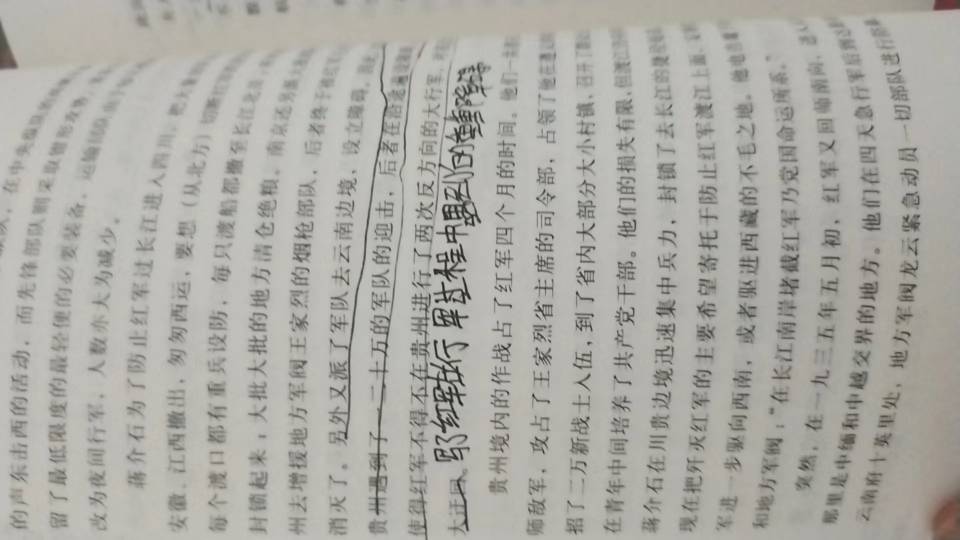 的声东击西的活动，而先锋部队则采取锥形攻势
留了最低限度的最轻便的必要装备，运输
改为夜间行军，人数亦大为减少。
蒋介石为了防止红军过长江进入四川，把大
安徽、江西撤出，匆匆西运，要想（从北方）切断
每个渡口都有重兵设防，每只渡船都撤至长江北岸
封锁起来；大批大批的地方清仓绝粮。南京还另派
州去增援地方军阀王家烈的烟枪部队，后者终于被
消灭了。另外又派了军队去云南边境，设立障碍。
贵州遇到了一二十万的军队的迎击，后者在沿途
使得红军不得不在贵州进行了两次反方向的大行军，
大迂回。写红军在行军过程中遇到的重重障碍
贵州境内的作战占了红军四个月的时间。他们一共
师敌军，攻占了王家烈省主席的司令部，占领了他在遵义
招了二万新战士入伍，到了省内大部分大小村镇，召开了
在青年中间培养了共产党干部。他们的损失有限，但渡江
蒋介石在川贵边境迅速集中兵力，封锁了去长江的捷
现在把歼灭红军的主要希望寄托于防止红军渡江上面，
军进一步驱向西南，或者驱进西藏的不毛之地。他电告
和地方军阀：“在长江南岸堵截红军乃党国命运所系。”
突然，在一九三五年五月初，红军又回师南向，进入
那里是中缅和中越交界的地方。他们在四天急行军后到达
云南府十英里处，地方军阀龙云紧急动员一切部队进行